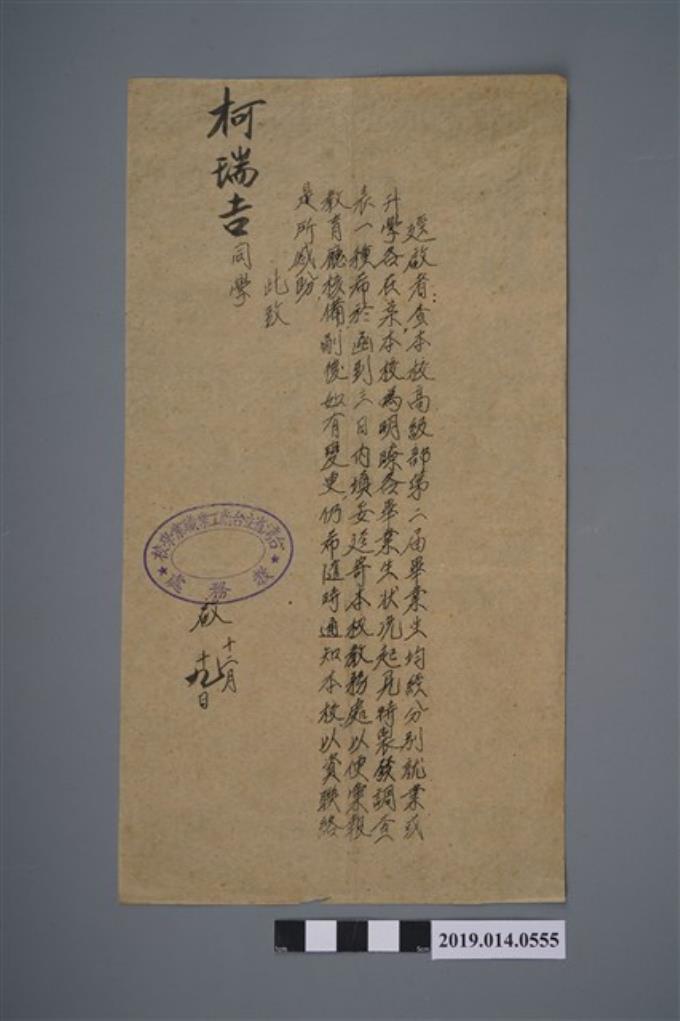 逕啟者：查本校高級部第二屆畢業生均經分別就業或
升學各在案，本校為明瞭各畢業生狀況起見特製發調查
表一種希於函到三日內填妥逕寄本校教務處以便彙報
教育廳核備，嗣後如有變更，仍希隨時通知本校，以資聯絡
是所感盼
此致
柯瑞吉同學
台灣省立台南工業職業學校
教務處
啟
十二月
十九日
5cm
2019.014.0555